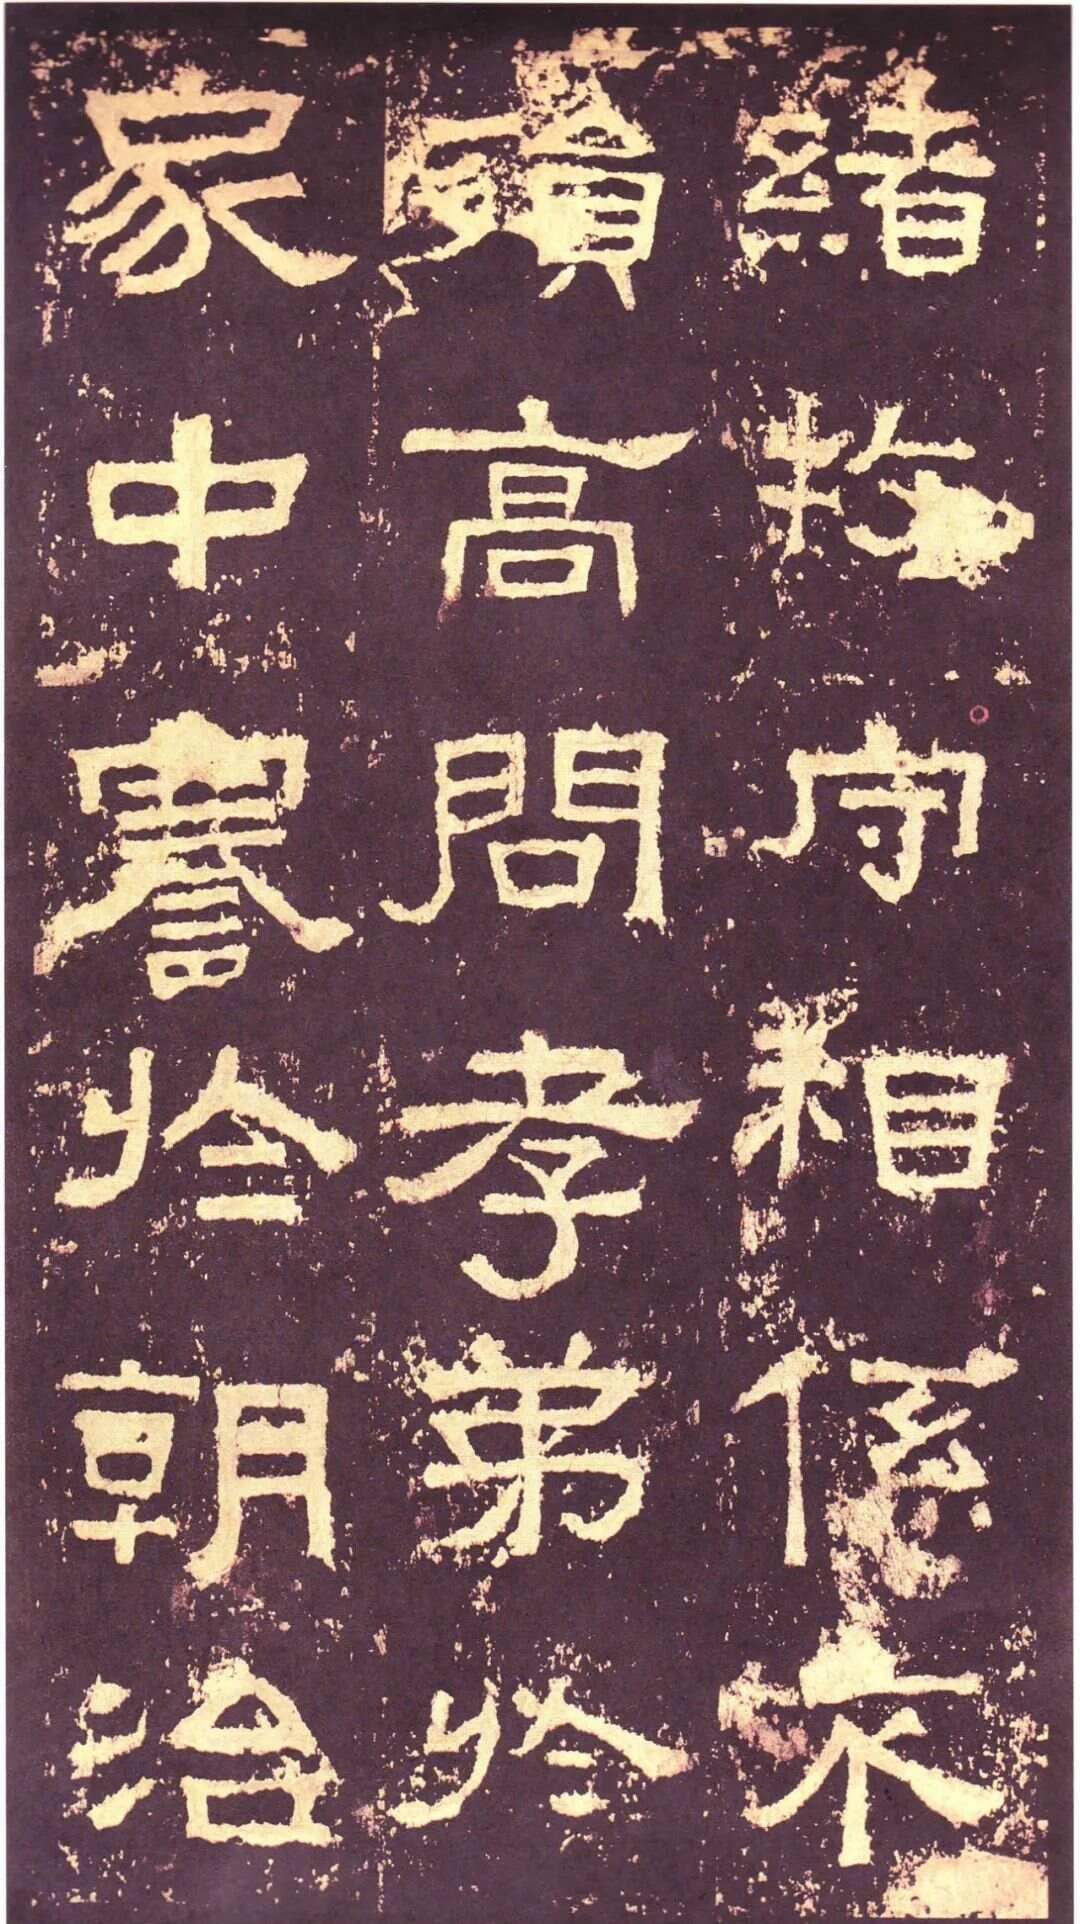 緒牧守相係不
殞高問孝弟於
家中謇於朝治